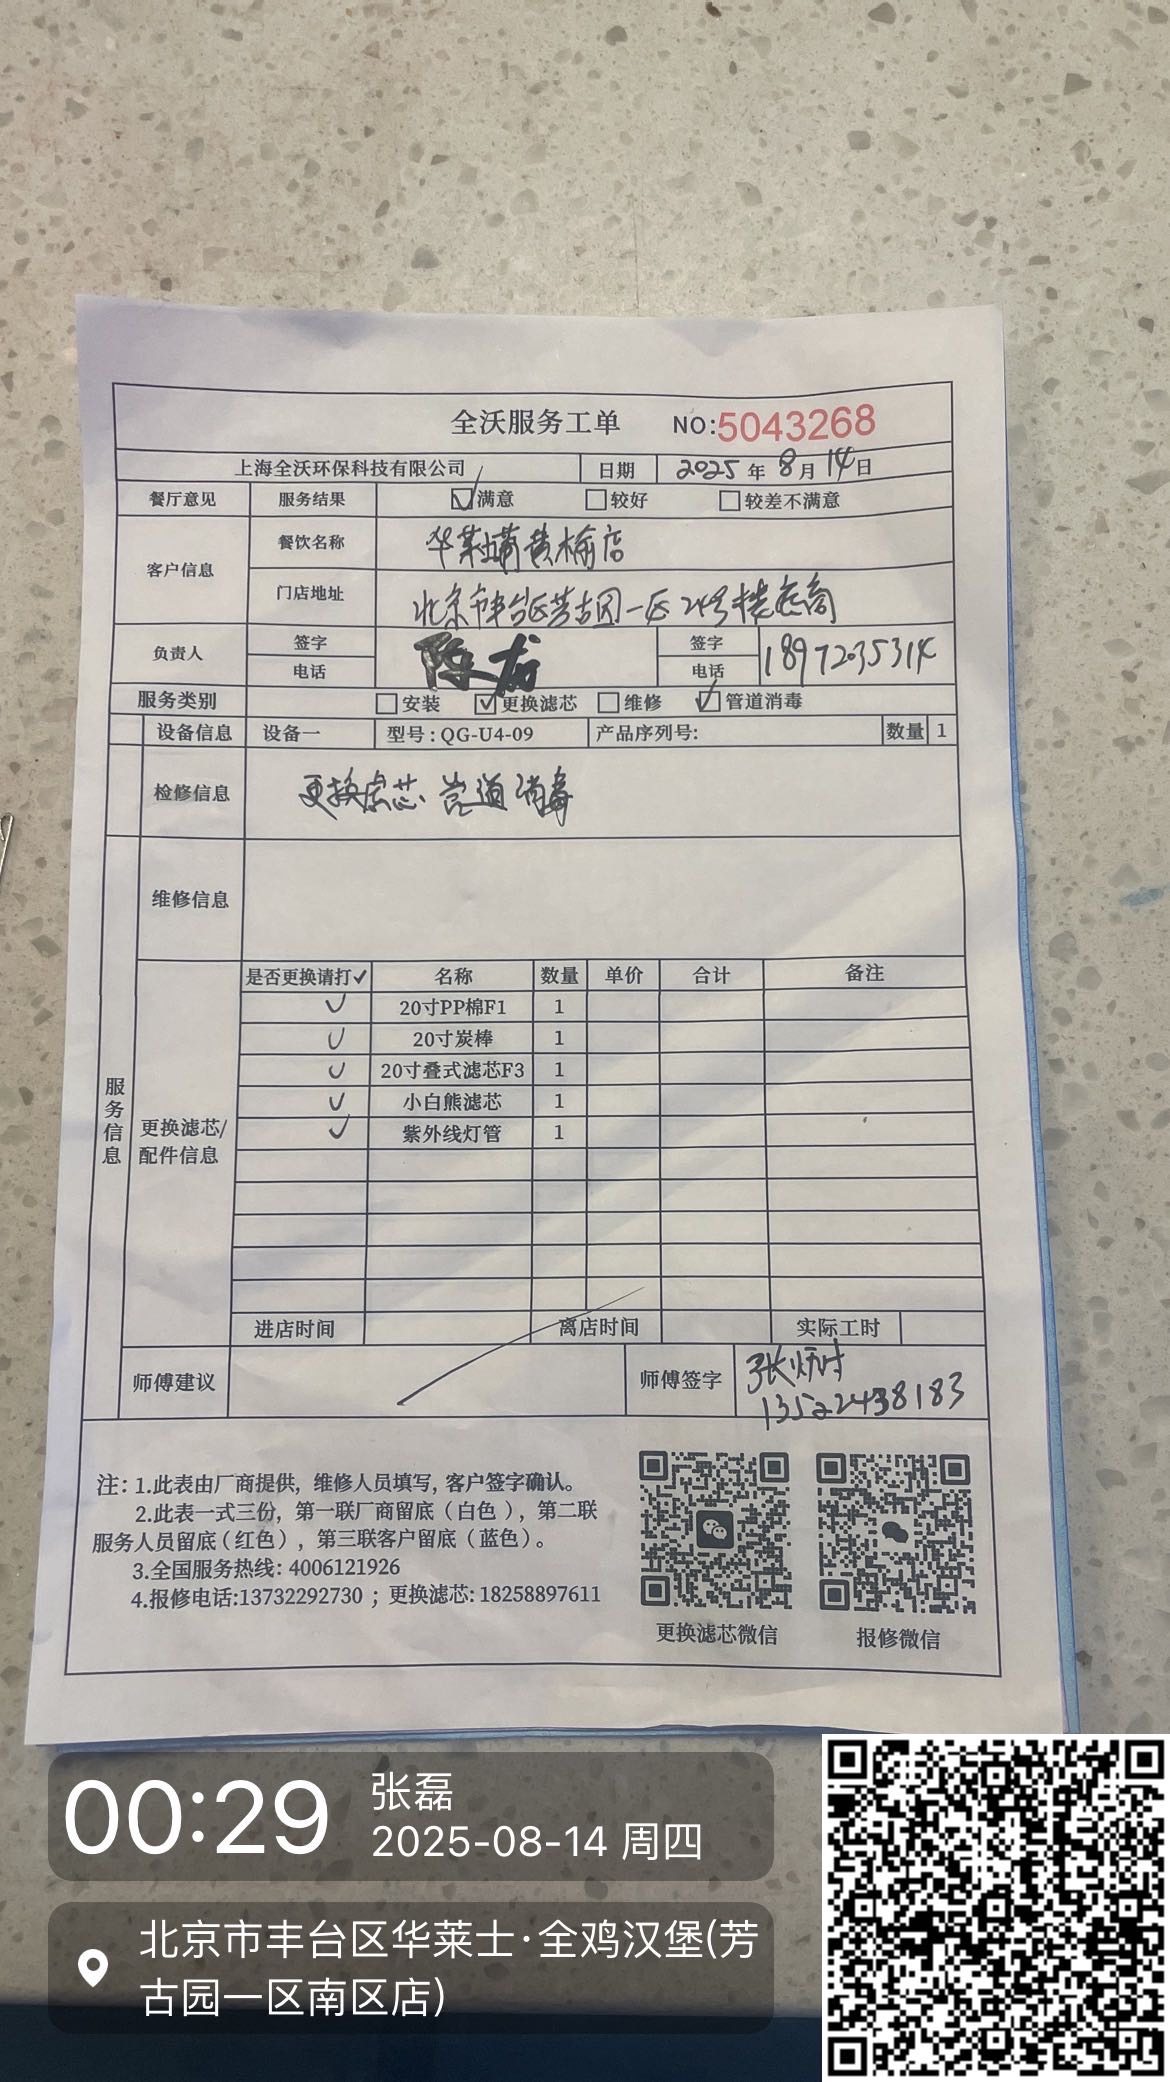 全沃服务工单 NO:5043268
上海全沃环保科技有限公司 日期 2025年8月14日
餐厅意见 服务结果 ☑满意 □较好 □较差不满意
客户信息 餐饮名称 华莱士蒲黄榆店
门店地址 北京市丰台区芳古园一区24号楼底商
负责人 签字 签字
电话 陈龙 电话 18972035314
服务类别 □安装 ☑更换滤芯 □维修 ☑管道消毒
设备信息 设备一 型号:QG-U4-09 产品序列号: 数量 1
检修信息 更换滤芯 管道消毒
维修信息
服务信息
更换滤芯/配件信息
是否更换请打✓ 名称 数量 单价 合计 备注
✓ 20寸PP棉F1 1
✓ 20寸炭棒 1
✓ 20寸叠式滤芯F3 1
✓ 小白熊滤芯 1
✓ 紫外线灯管 1
进店时间 离店时间 实际工时
师傅建议 师傅签字 张
13522438183
注: 1.此表由厂商提供, 维修人员填写, 客户签字确认。
2.此表一式三份, 第一联厂商留底(白色), 第二联
服务人员留底(红色), 第三联客户留底(蓝色)。
3.全国服务热线: 4006121926
4.报修电话:13732292730 ; 更换滤芯: 18258897611
更换滤芯微信 报修微信
00:29 张磊
2025-08-14 周四
北京市丰台区华莱士·全鸡汉堡(芳
古园一区南区店)